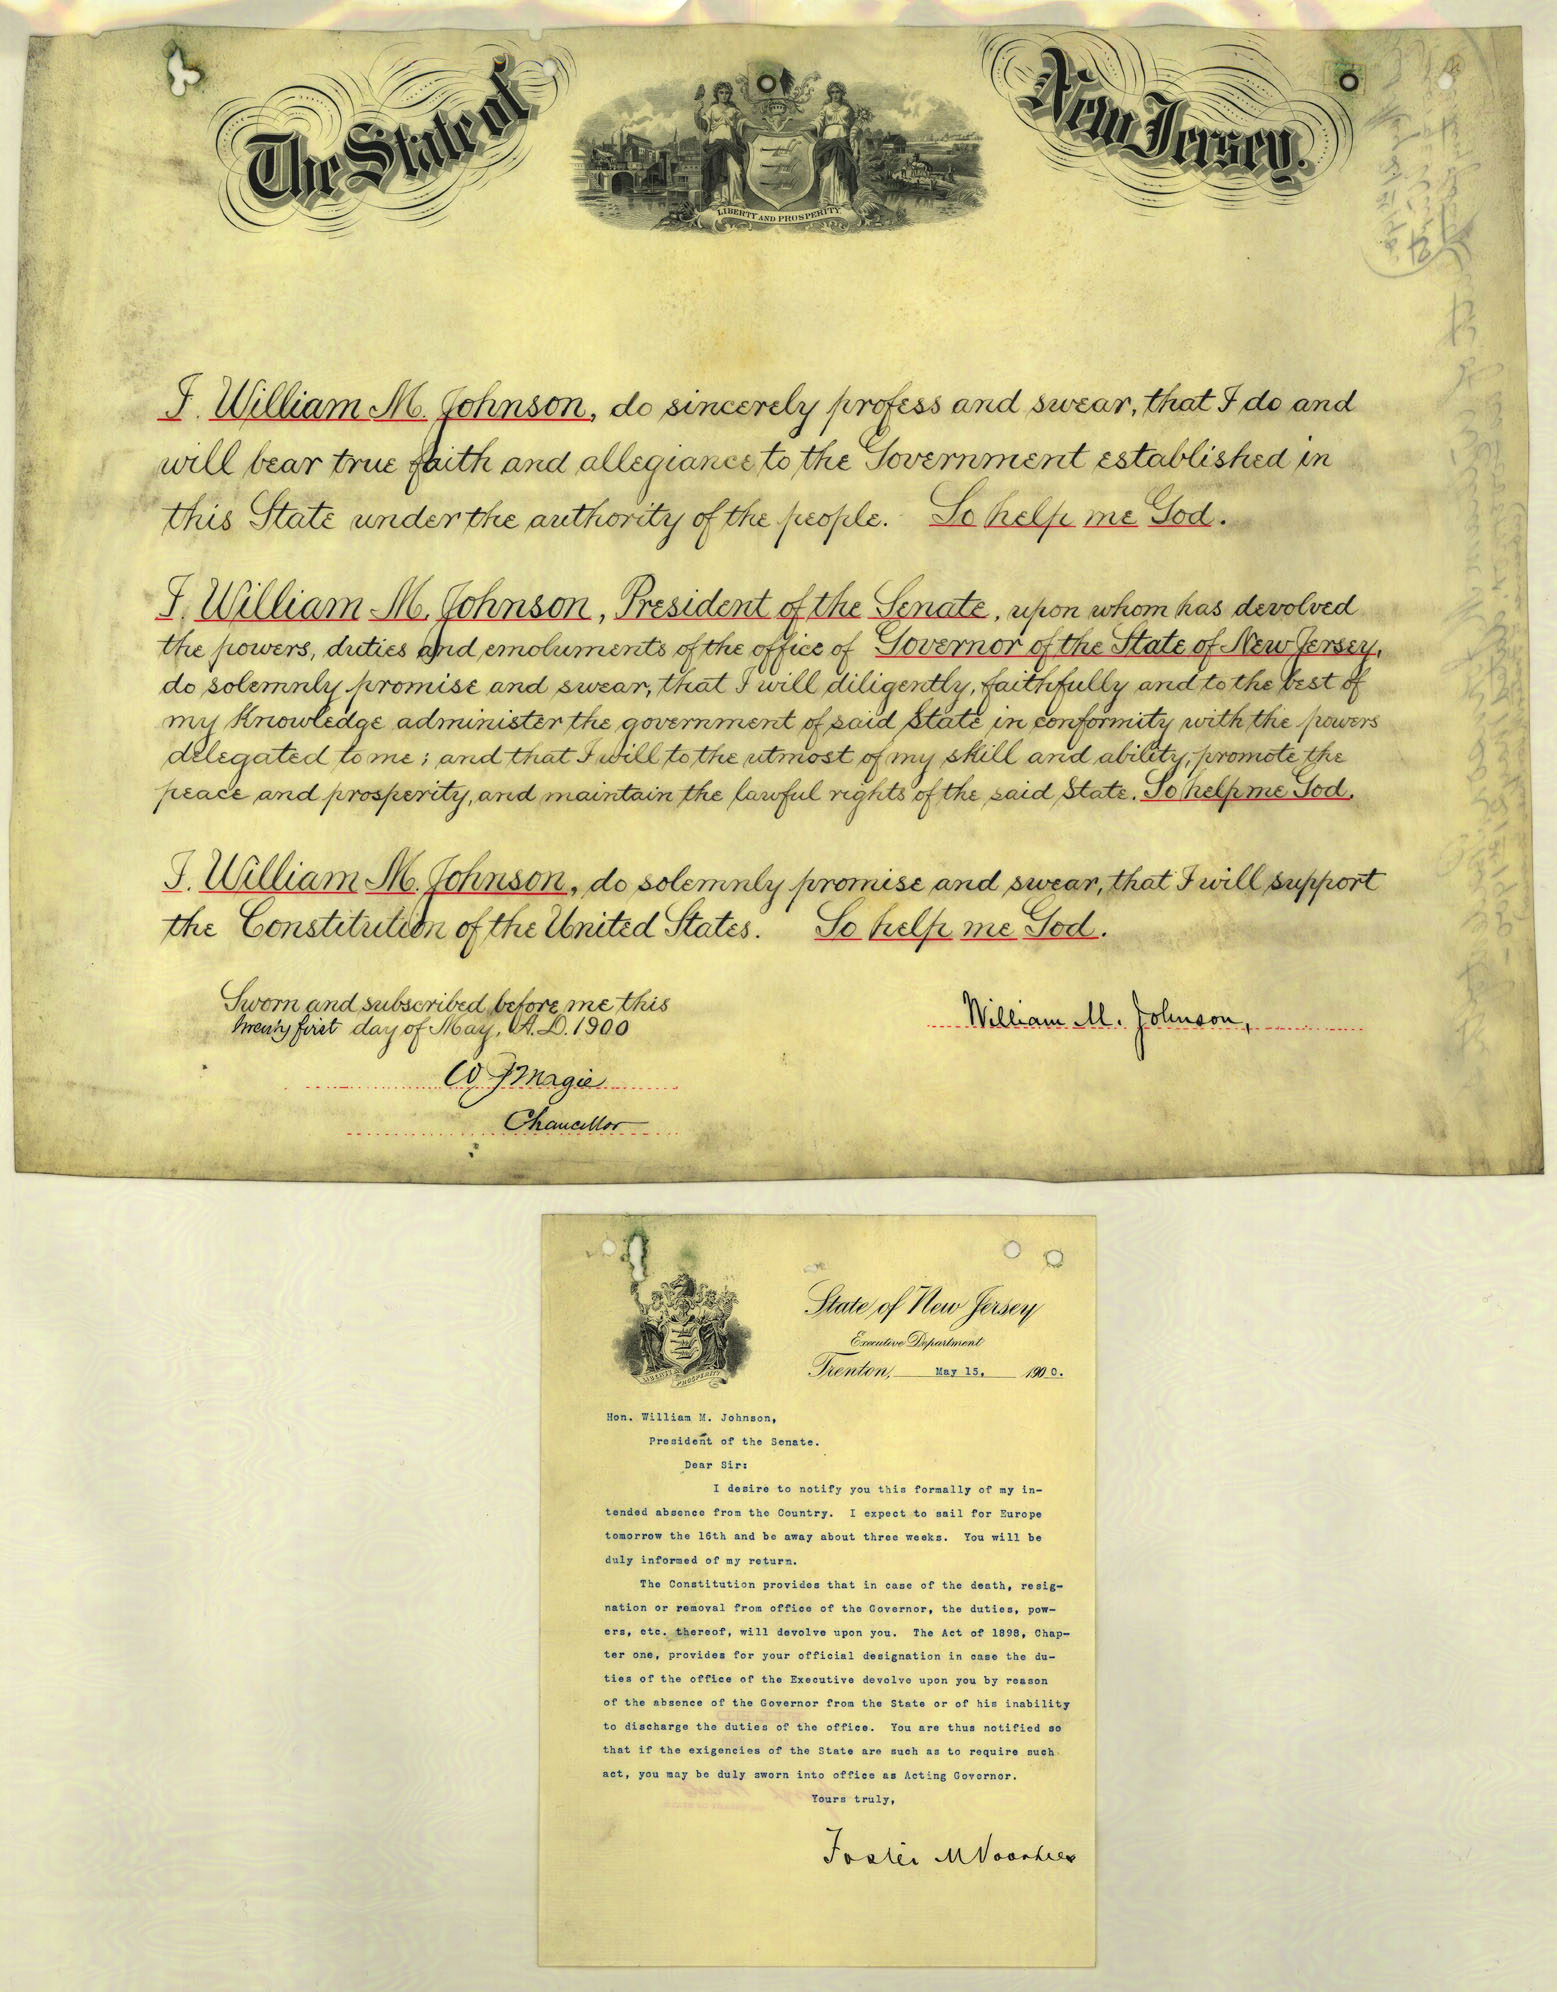 The State of New Jersey.
LIBERTY AND PROSPERITY
I, William M. Johnson, do sincerely profess and swear, that I do and
will bear true faith and allegiance to the Government established in
this State under the authority of the people. So help me God.
I, William M. Johnson, President of the Senate, upon whom has devolved
the powers, duties and emoluments of the office of Governor of the State of New Jersey,
do solemnly promise and swear, that I will diligently, faithfully and to the best of
my knowledge administer the government of said State in conformity with the powers
delegated to me; and that I will to the utmost of my skill and ability, promote the
peace and prosperity, and maintain the lawful rights of the said State. So help me God.
I, William M. Johnson, do solemnly promise and swear, that I will support
the Constitution of the United States. So help me God.
Sworn and subscribed before me this
twenty first day of May, A.D. 1900
W J Magie
Chancellor
William M. Johnson,
LIBERTY PROSPERITY
State of New Jersey
Executive Department
Trenton, May 15, 1900.
Hon. William M. Johnson,
President of the Senate.
Dear Sir:
I desire to notify you this formally of my in-
tended absence from the Country. I expect to sail for Europe
tomorrow the 16th and be away about three weeks. You will be
duly informed of my return.
The Constitution provides that in case of the death, resig-
nation or removal from office of the Governor, the duties, pow-
ers, etc. thereof, will devolve upon you. The Act of 1898, Chap-
ter one, provides for your official designation in case the du-
ties of the office of the Executive devolve upon you by reason
of the absence of the Governor from the State or of his inability
to discharge the duties of the office. You are thus notified so
that if the exigencies of the State are such as to require such
act, you may be duly sworn into office as Acting Governor.
Yours truly,
Foster M Voorhees